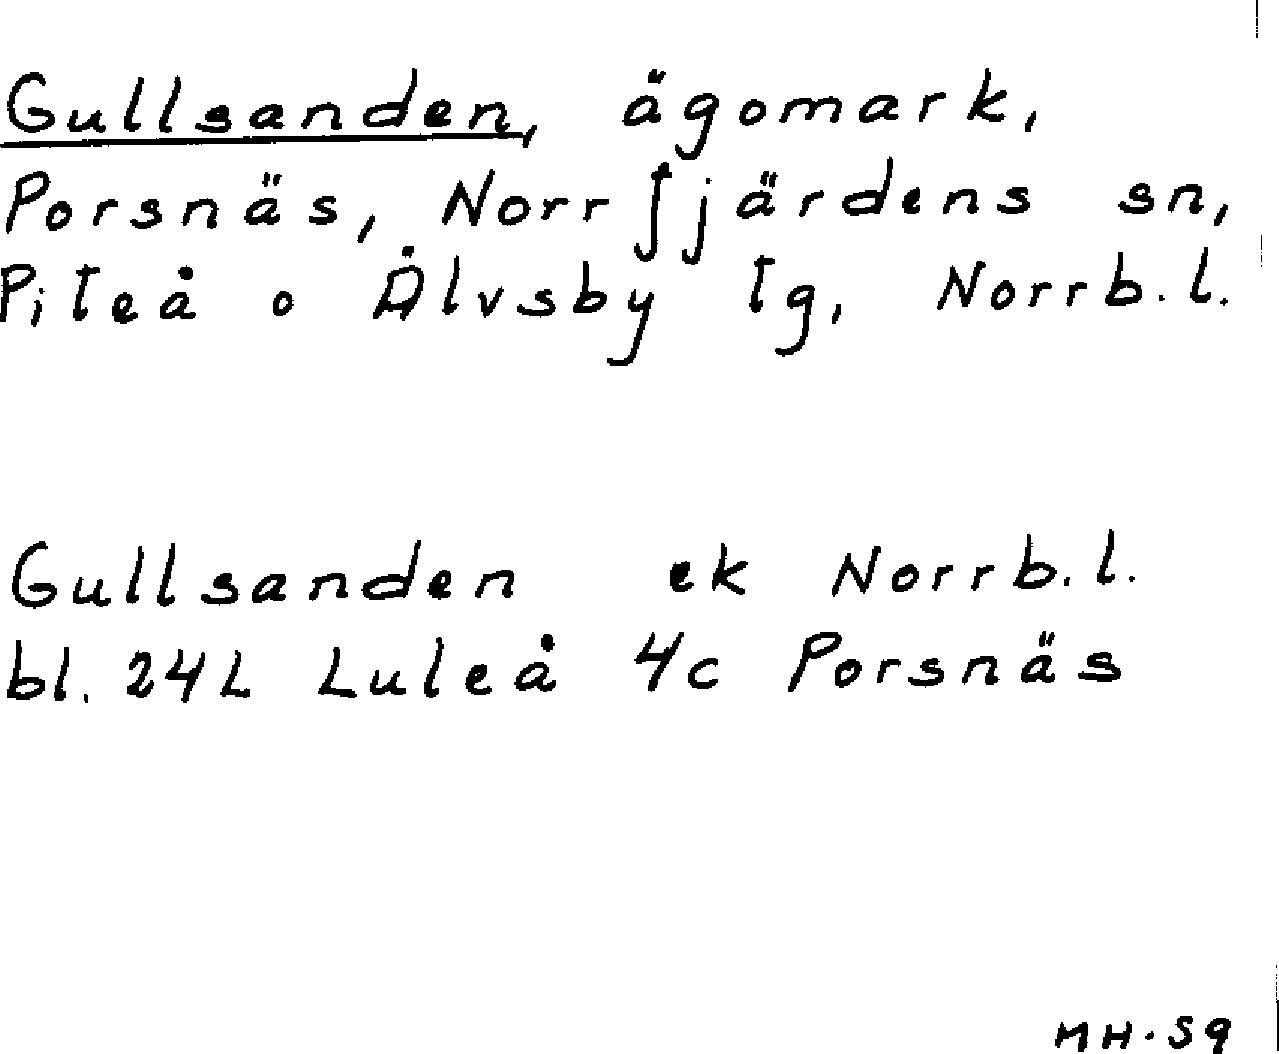 Gullsanden, ägomark,
Porsnäs, Norrfjärdens sn,
Piteå o Älvsby tg, Norrb.l.
Gullsanden ek Norrb.l.
bl. 24L Luleå 4c Porsnäs
MH.59